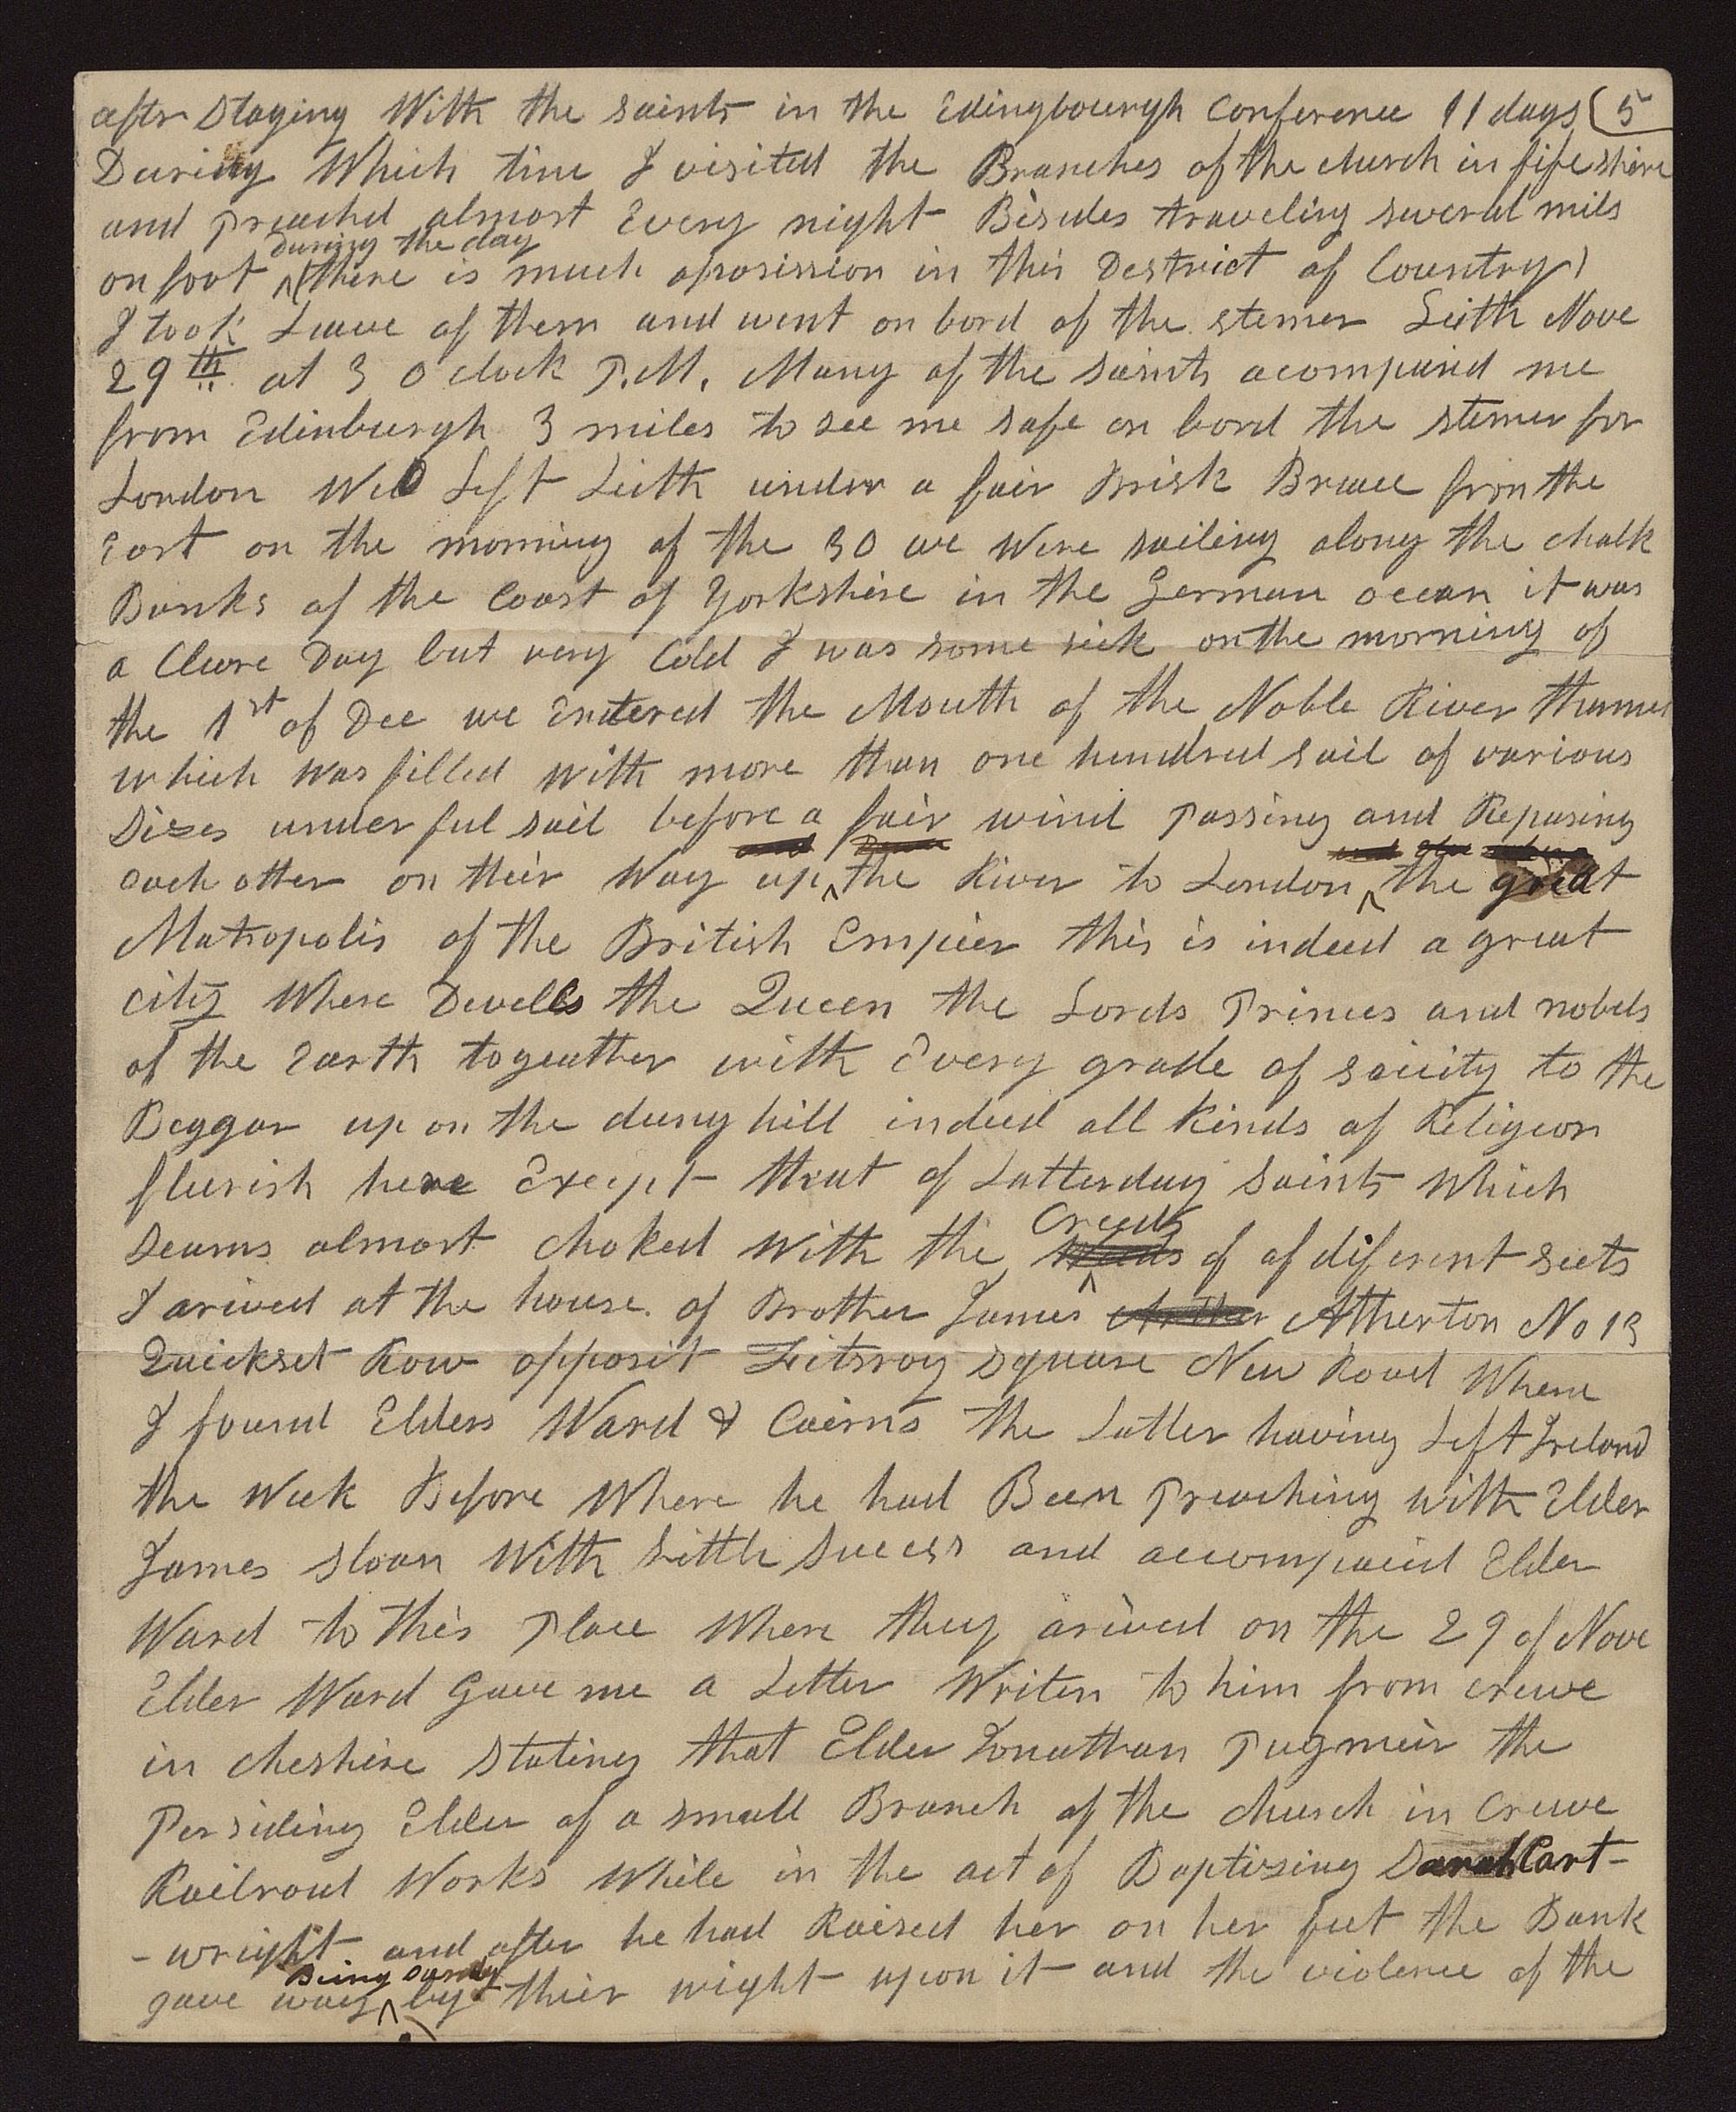 after Staying With the saints in the Edingbourgh Conference 11 days (5
During Which time I visited the Branches of the church in fifeshire
and Preachd almost Every night Besides traveling several mils
during the day
on foot (there is much oposission in this Destrict of Country)
I took Leave of them and went on bord of the stemer Leith Nove
29th at 3 O clock P.M. Many of the saints acompanid me
from Edinburgh 3 miles to see me safe on bord the stemer for
London We Left Leith under a fair Brisk Breace from the
East on the morning of the 30 we Were sailing along the chalk
Banks of the Coast of Yorkshire in the German ocean it was
a Cleare Day but very Cold I was some sick on the morning of
the 1st of Dec we Entered the Mouth of the Noble River thames
which was filled with more than one hundred sail of various
Sizes under ful sail before a fair wind Passing and Repasing
each other on their Way up the River to London the great
Matropolis of the British Empier this is indeed a great
city Where Dwells the Queen the Lords Princes and nobels
of the Earth togeather with Every grade of soicity to the
Beggar up on the dung hill indeed all Kinds of Religeon
flurish here Except that of Latterday Saints Which
Creeds
seams almost choked With the weeds of of diferent sects
I arived at the house of Brother James Atherton No 13
Quickset Row opposit Feitsroy Square New Road Where
I found Elders Ward & Cairns the Latter having Left Ireland
the Week Before Where he had Been Preaching with Elder
James Sloan With Little Success and accompanid Elder
Ward to this Place Where they arived on the 29 of Nove
Elder Ward Gave me a Letter Writen to him from crewe
in cheshire Stating that Elder Jonathan Pugmeir the
Persiding Elder of a small Branch of the church in Crewe
Railroad Works While in the act of Baptizing Sarah Cart-
-wright and after he had Raised her on her feet the Bank
Being Sandy
gave way by their wight upon it and the violence of the